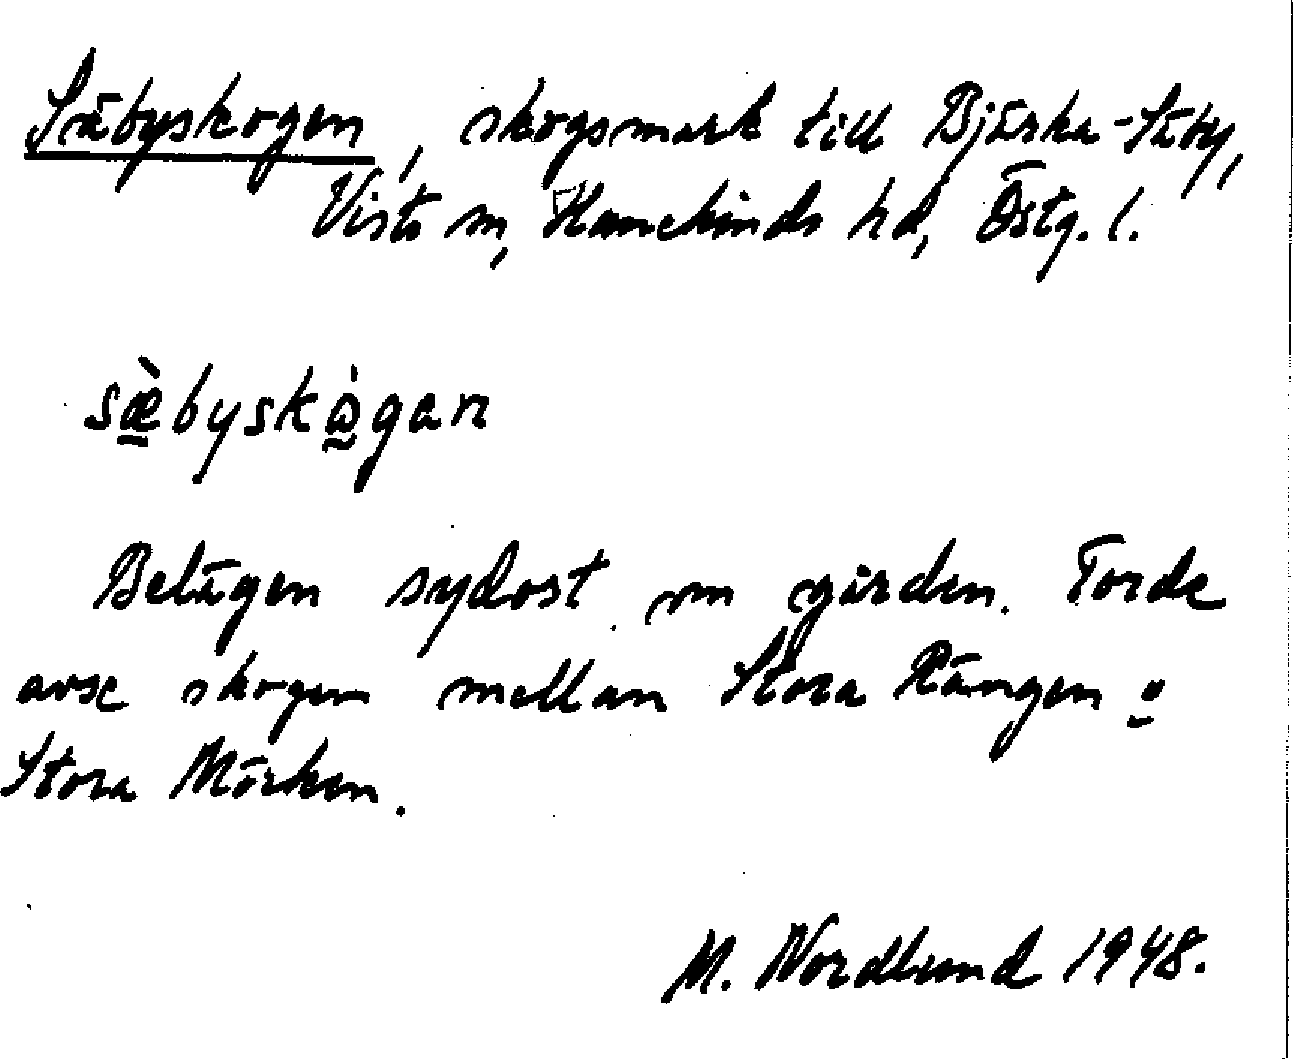 Säbyskogen, skogsmark till Bjärka-Säby,
Vists sn, Hanekinds hd, Östg. l.
sæ̀byskò̱gan
Belägen sydost om gården. Torde
avse skogen mellan Stora Rängen o
Stora Mörken.
M. Nordlund 1948.